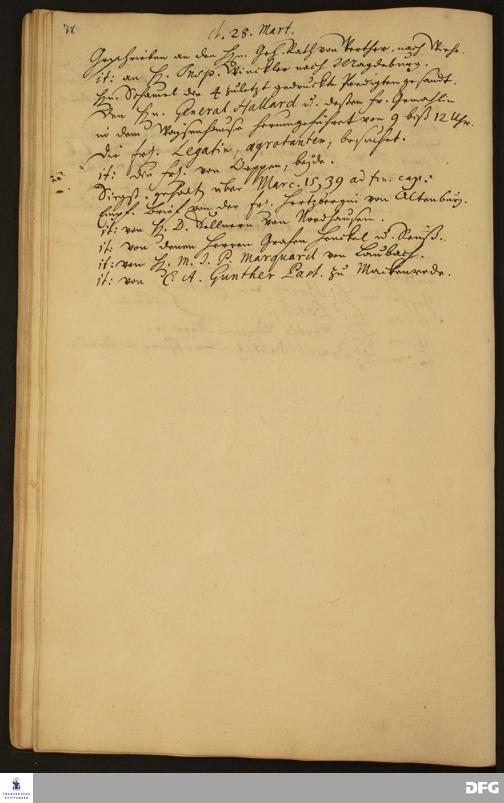 78
d. 28. Mart.
Geschrieben an den Hn. Geh. Rath von Werther, nach Wiehe.
it: an H. Insp. Winckler nach Magdeburg.
Hn. Schamel die 4 zuletzt gedruckte Predigten gesandt.
Den Hn. General Hallard u. deßen Fr. Gemahlin
in dem Waysenhause herumgeführet von 9 biß 12 Uhr.
Die Frl. Legatin, agrotanten, besuchet.
it: die Frl. von Oeppen, beyde.
Singst. gehabt über Marc. 15, 39 ad fin. cap.:
Empf. Brief von der Fr. Hertzbergin von Altenburg.
it: von H. D. Kellnern von Nordhausen.
it: von denen Herren Grafen Henckel u. Reuß.
it: von H. M. J. P. Marquard von Laubach.
it: von C. A. Günther Past. zu Mackenrode.
FRANCKESCHE STIFTUNGEN
DFG